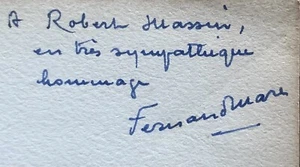 A Robert Massin,
en très sympathique
hommage
Fernand Marc